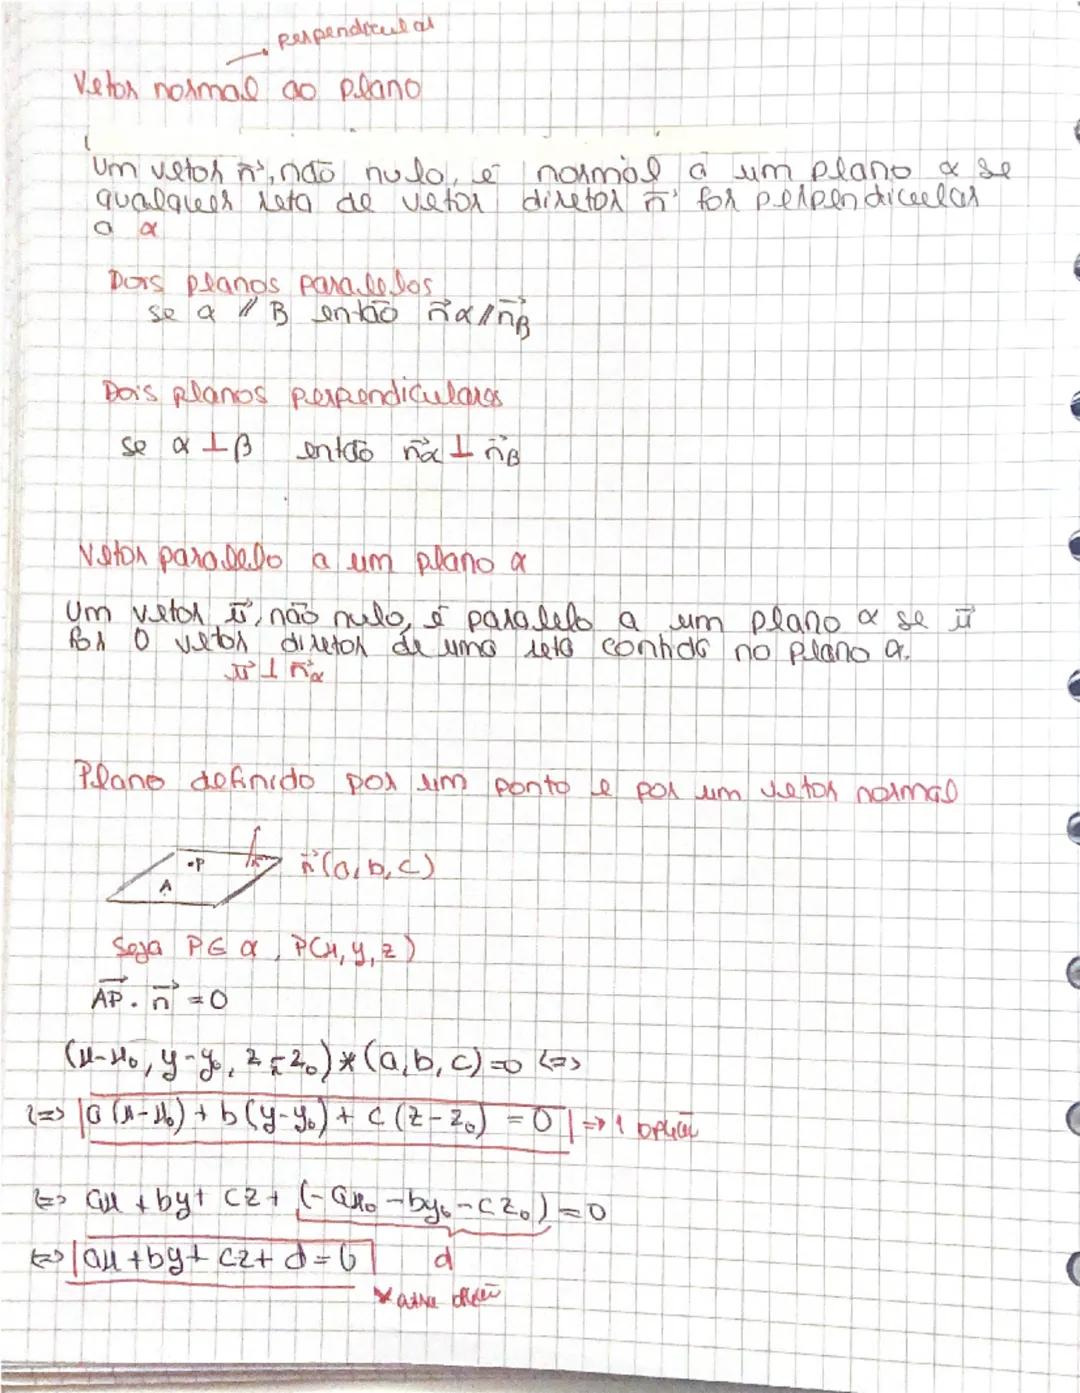 perpendicular
Vetor normal ao plano
Um vetor n⃗, não nulo, é normal a um plano α se
qualquer reta de vetor diretor n⃗ for perpendicular
a α
Dois planos paralelos
se α // β então n⃗α // n⃗β
Dois planos perpendiculares
se α ⊥ β então n⃗α ⊥ n⃗β
Vetor paralelo a um plano α
Um vetor u⃗, não nulo, é paralelo a um plano α se u⃗
for o vetor diretor de uma reta contida no plano α.
u⃗ ⊥ n⃗α
Plano definido por um ponto e por um vetor normal
•P
A
n⃗(a,b,c)
Seja P∈ α, P(x,y,z)
AP⃗ . n⃗ = 0
(x-x₀, y-y₀, z-z₀)*(a,b,c)=0 <=>
<=> a(x-x₀) + b(y-y₀) + c(z-z₀) = 0 => 1
<=> ax + by + cz + (-ax₀ -by₀ -cz₀) = 0
<=> ax + by + cz + d = 0
d